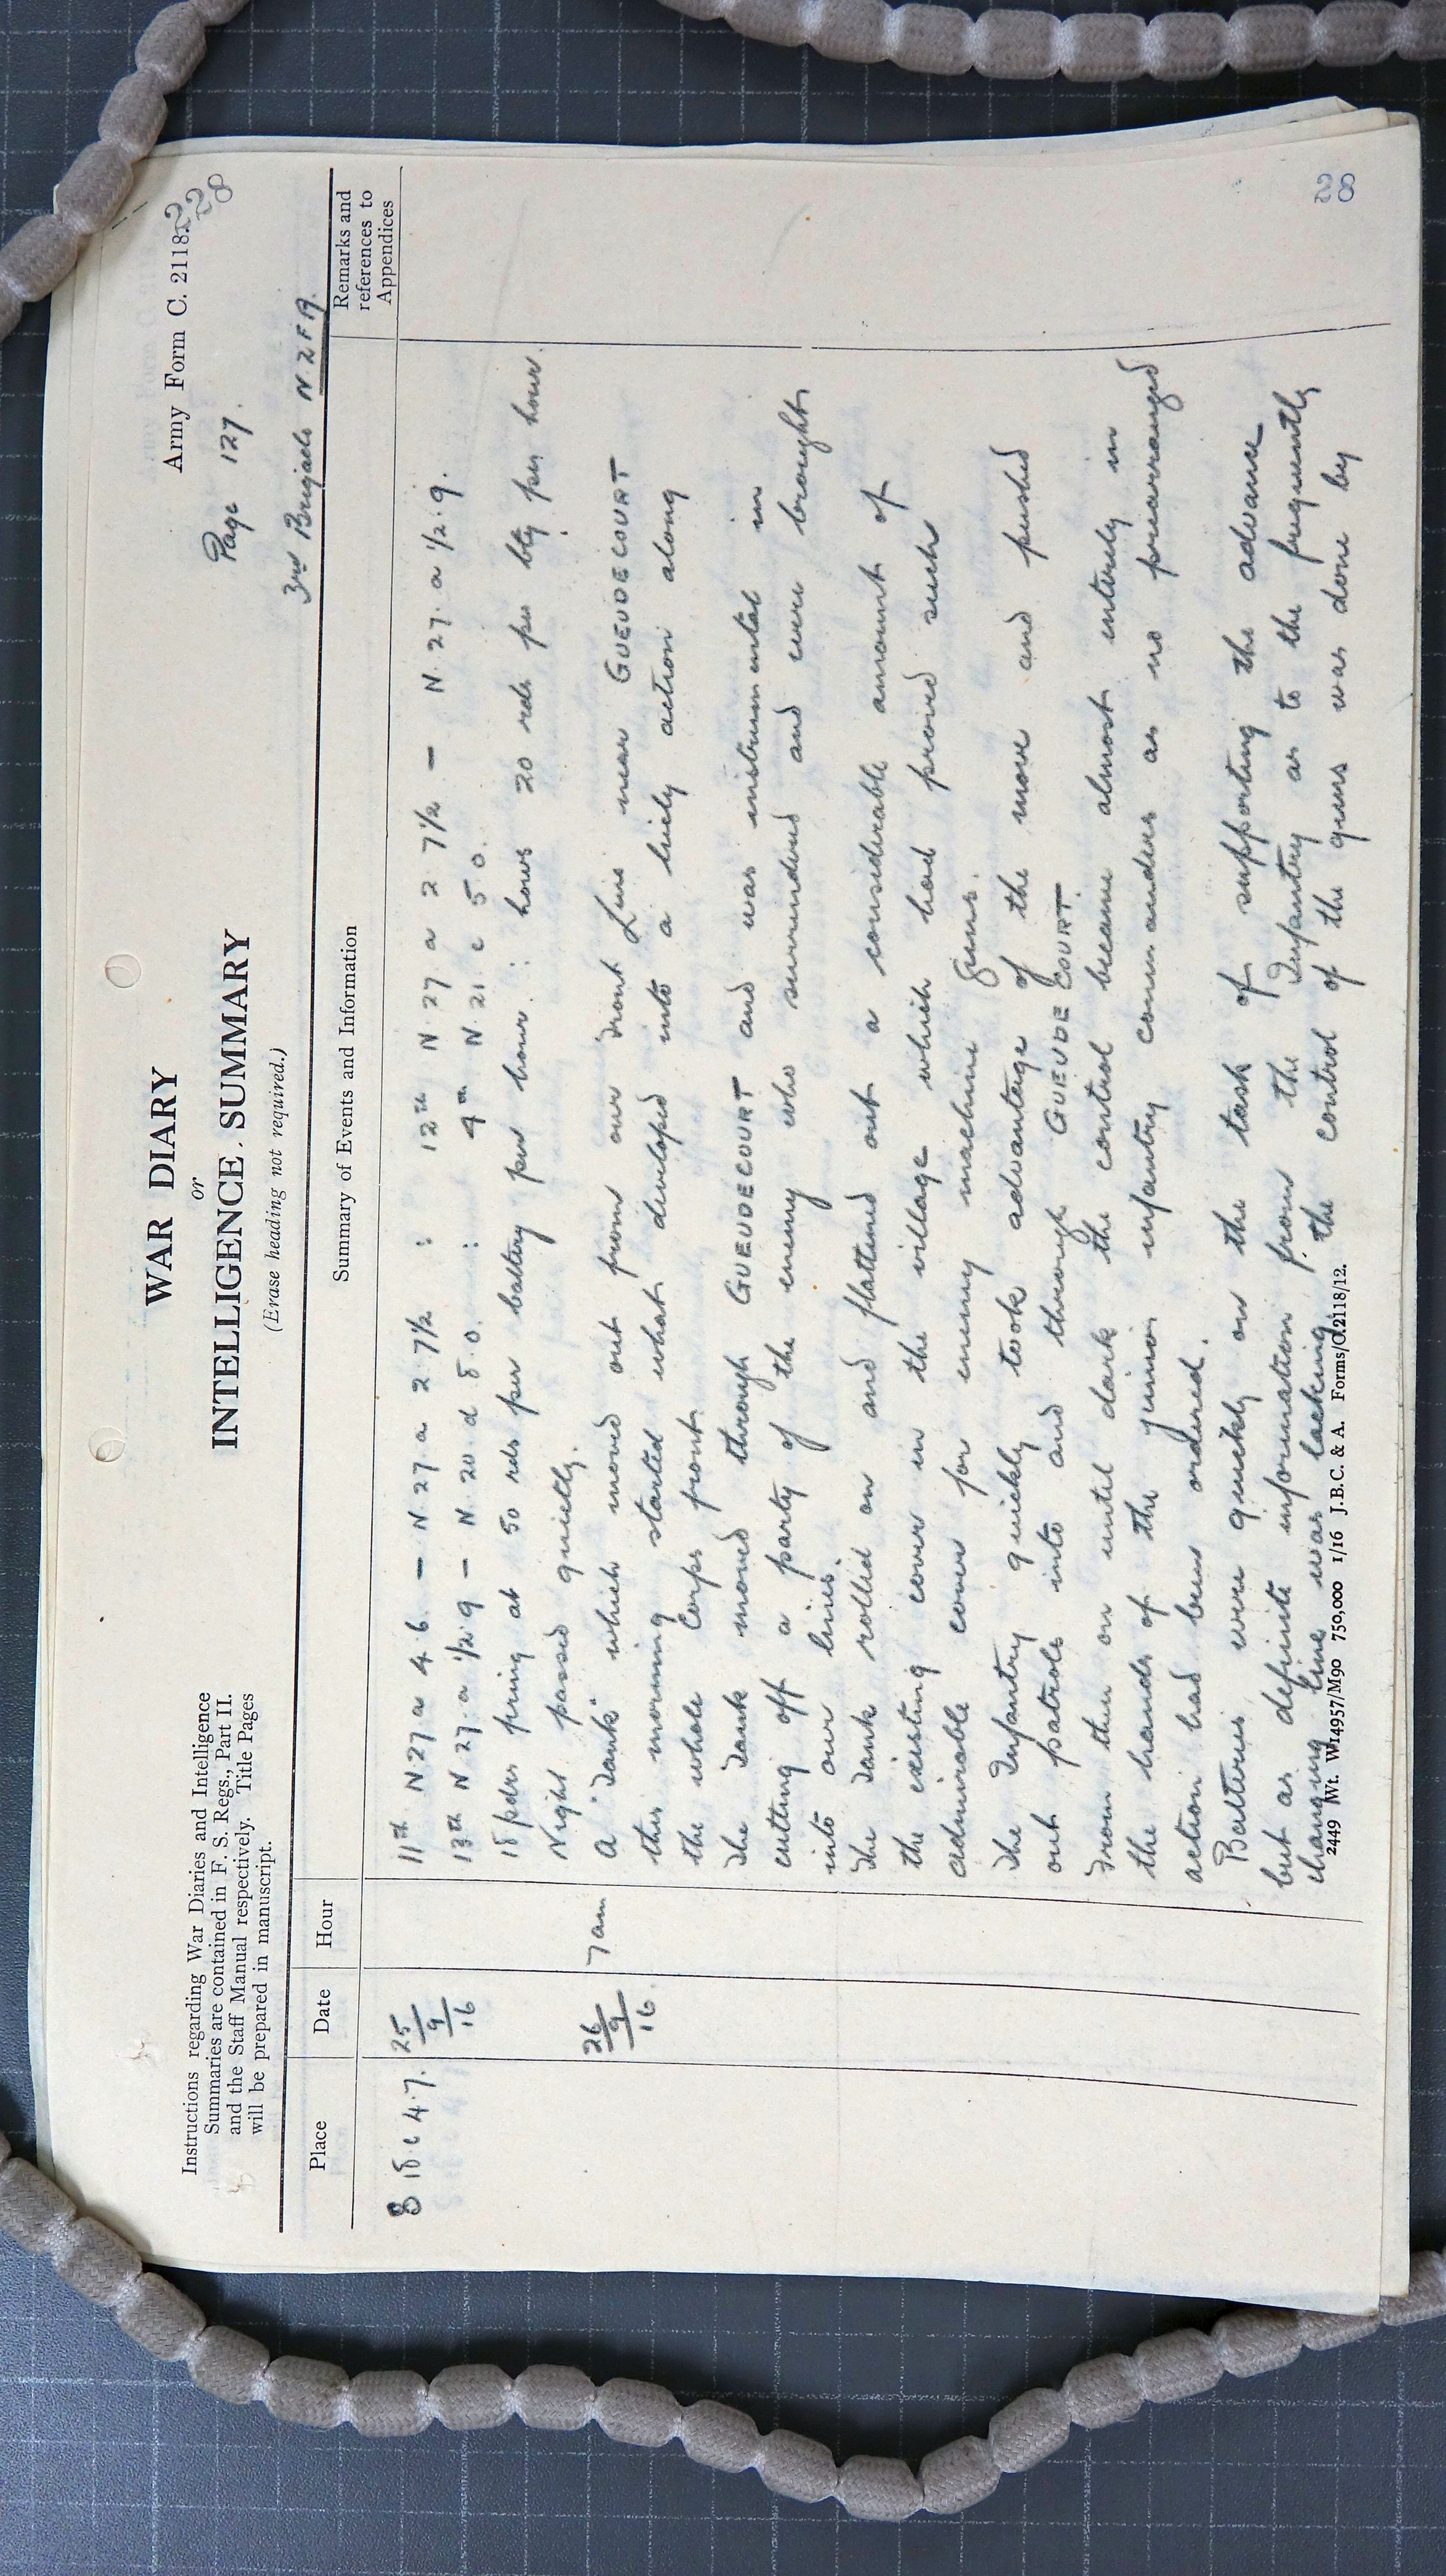 Army Form C. 2118.
228
WAR DIARY
or
INTELLIGENCE SUMMARY
(Erase heading not required.)
Instructions regarding War Diaries and Intelligence
Summaries are contained in F. S. Regs., Part II.
and the Staff Manual respectively. Title Pages
will be prepared in manuscript.
Page 127.
3rd Brigade N Z F A.
Place Date Hour Summary of Events and Information Remarks and references to Appendices
S 18 c 4.7. 25/9/16 11th N 27 a 4.6. — N 27 a 2.7½ : 12th N 27 a 2 7½ — N. 27. a ½.9.
13th N 27. a ½.9 — N 20. d 8.0. : 4th N 21. c 5 0.
18 pdrs firing at 50 rds per battery per hour : hows 20 rds per bty per hour.
Night passed quietly.
26/9/16. 7am A "Tank" which moved out from our Front Line near GUEUDECOURT
this morning started what developed into a lively action along
the whole Corps front.
The Tank moved through GUEUDECOURT and was instrumental in
cutting off a party of the enemy who surrendered and were brought
into our lines.
The Tank rolled on and flattened out a considerable amount of
the existing cover in the village which had proved such
admirable cover for enemy machine guns.
The Infantry quickly took advantage of the move and pushed
out patrols into and through GUEUDECOURT.
From then on until dark the control became almost entirely in
the hands of the junior infantry commanders as no prearranged
action had been ordered.
Batteries were quickly on the task of supporting the advance
but as definite information from the Infantry as to the frequently
changing line was lacking the control of the guns was done by
2449 Wt. W14957/M90 750,000 1/16 J.B.C. & A. Forms/C.2118/12.
28